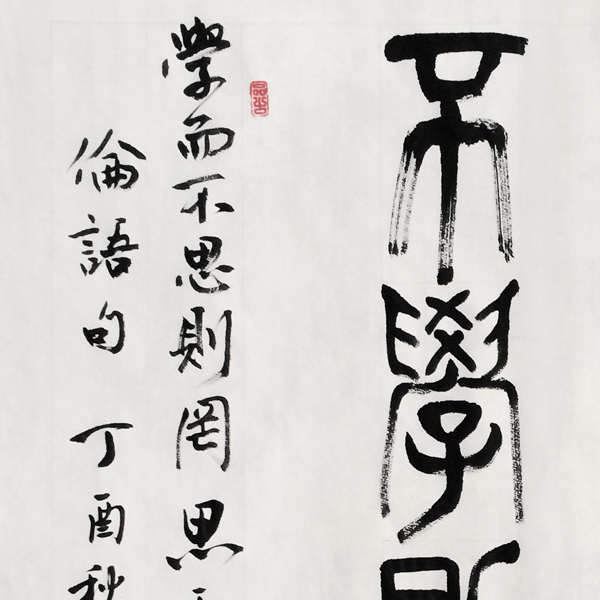 不學
學而不思則罔思
倫語句 丁酉秋